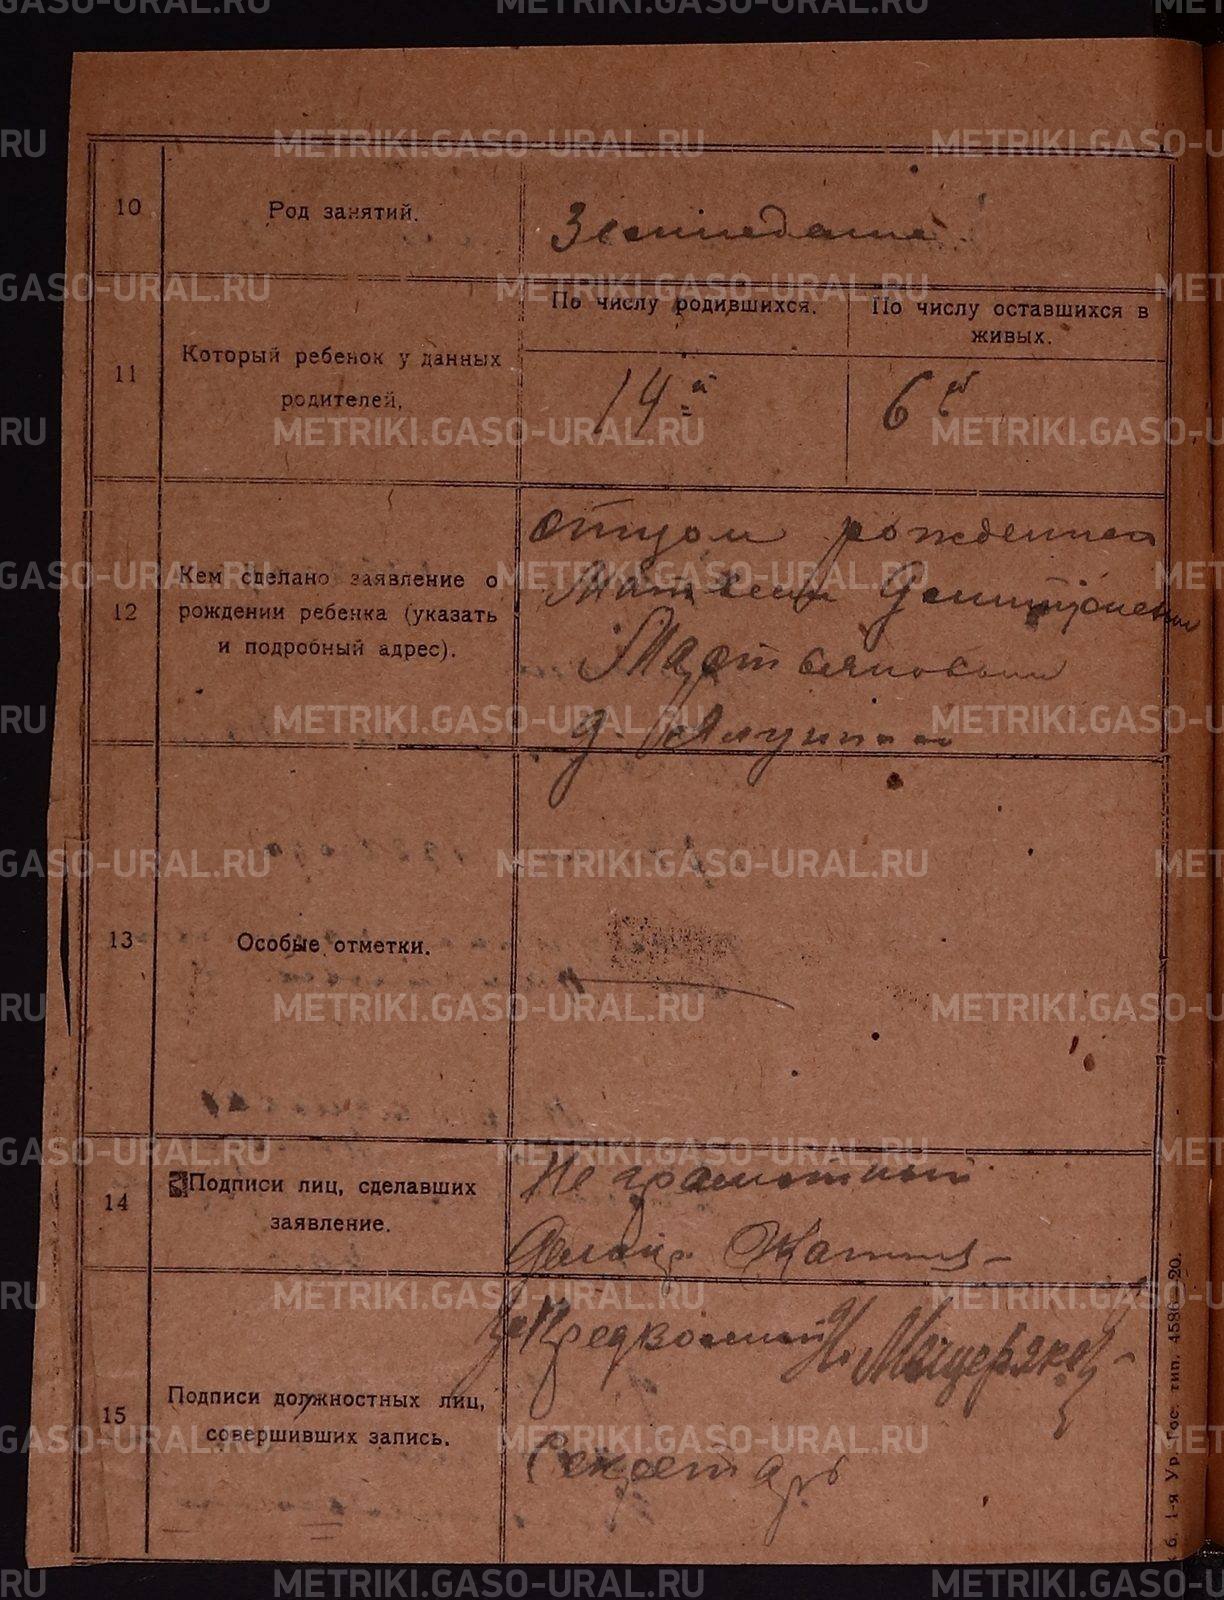 10
Род занятий.
Земледелие
11
Который ребенок у данных
родителей.
По числу родившихся.
По числу оставшихся в
живых.
14й
6й
12
Кем сделано заявление о
рождении ребенка (указать
и подробный адрес).
отцом рожденной
Матвеем
Мартьяновым
д.
13
Особые отметки.
14
Подписи лиц, сделавших
заявление.
Не грамотный
15
Подписи должностных лиц,
совершивших запись.
Н. Мещеряков
Секретарь
6. 1-я Ур. Гос. тип. 4586—20.
METRIKI.GASO-URAL.RU